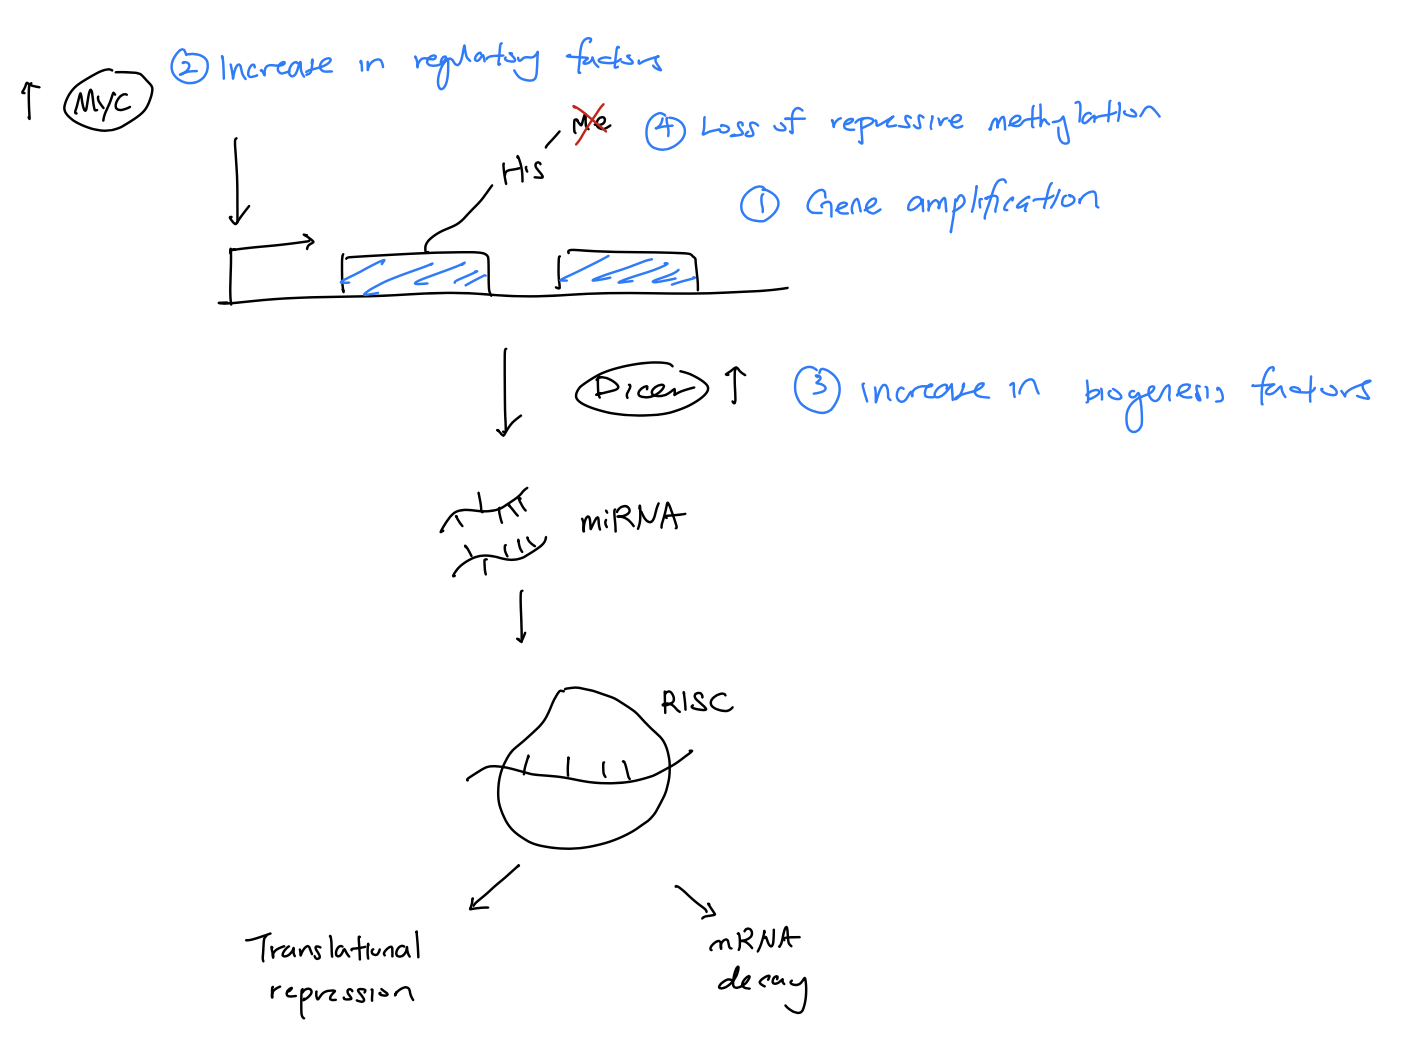 ② Increase in regulatory factors
↑ Myc
Me ④ Loss of repressive methylation
His
① Gene amplification
Dicer ↑ ③ increase in biogenesis factors
miRNA
RISC
Translational
repression
mRNA
decay